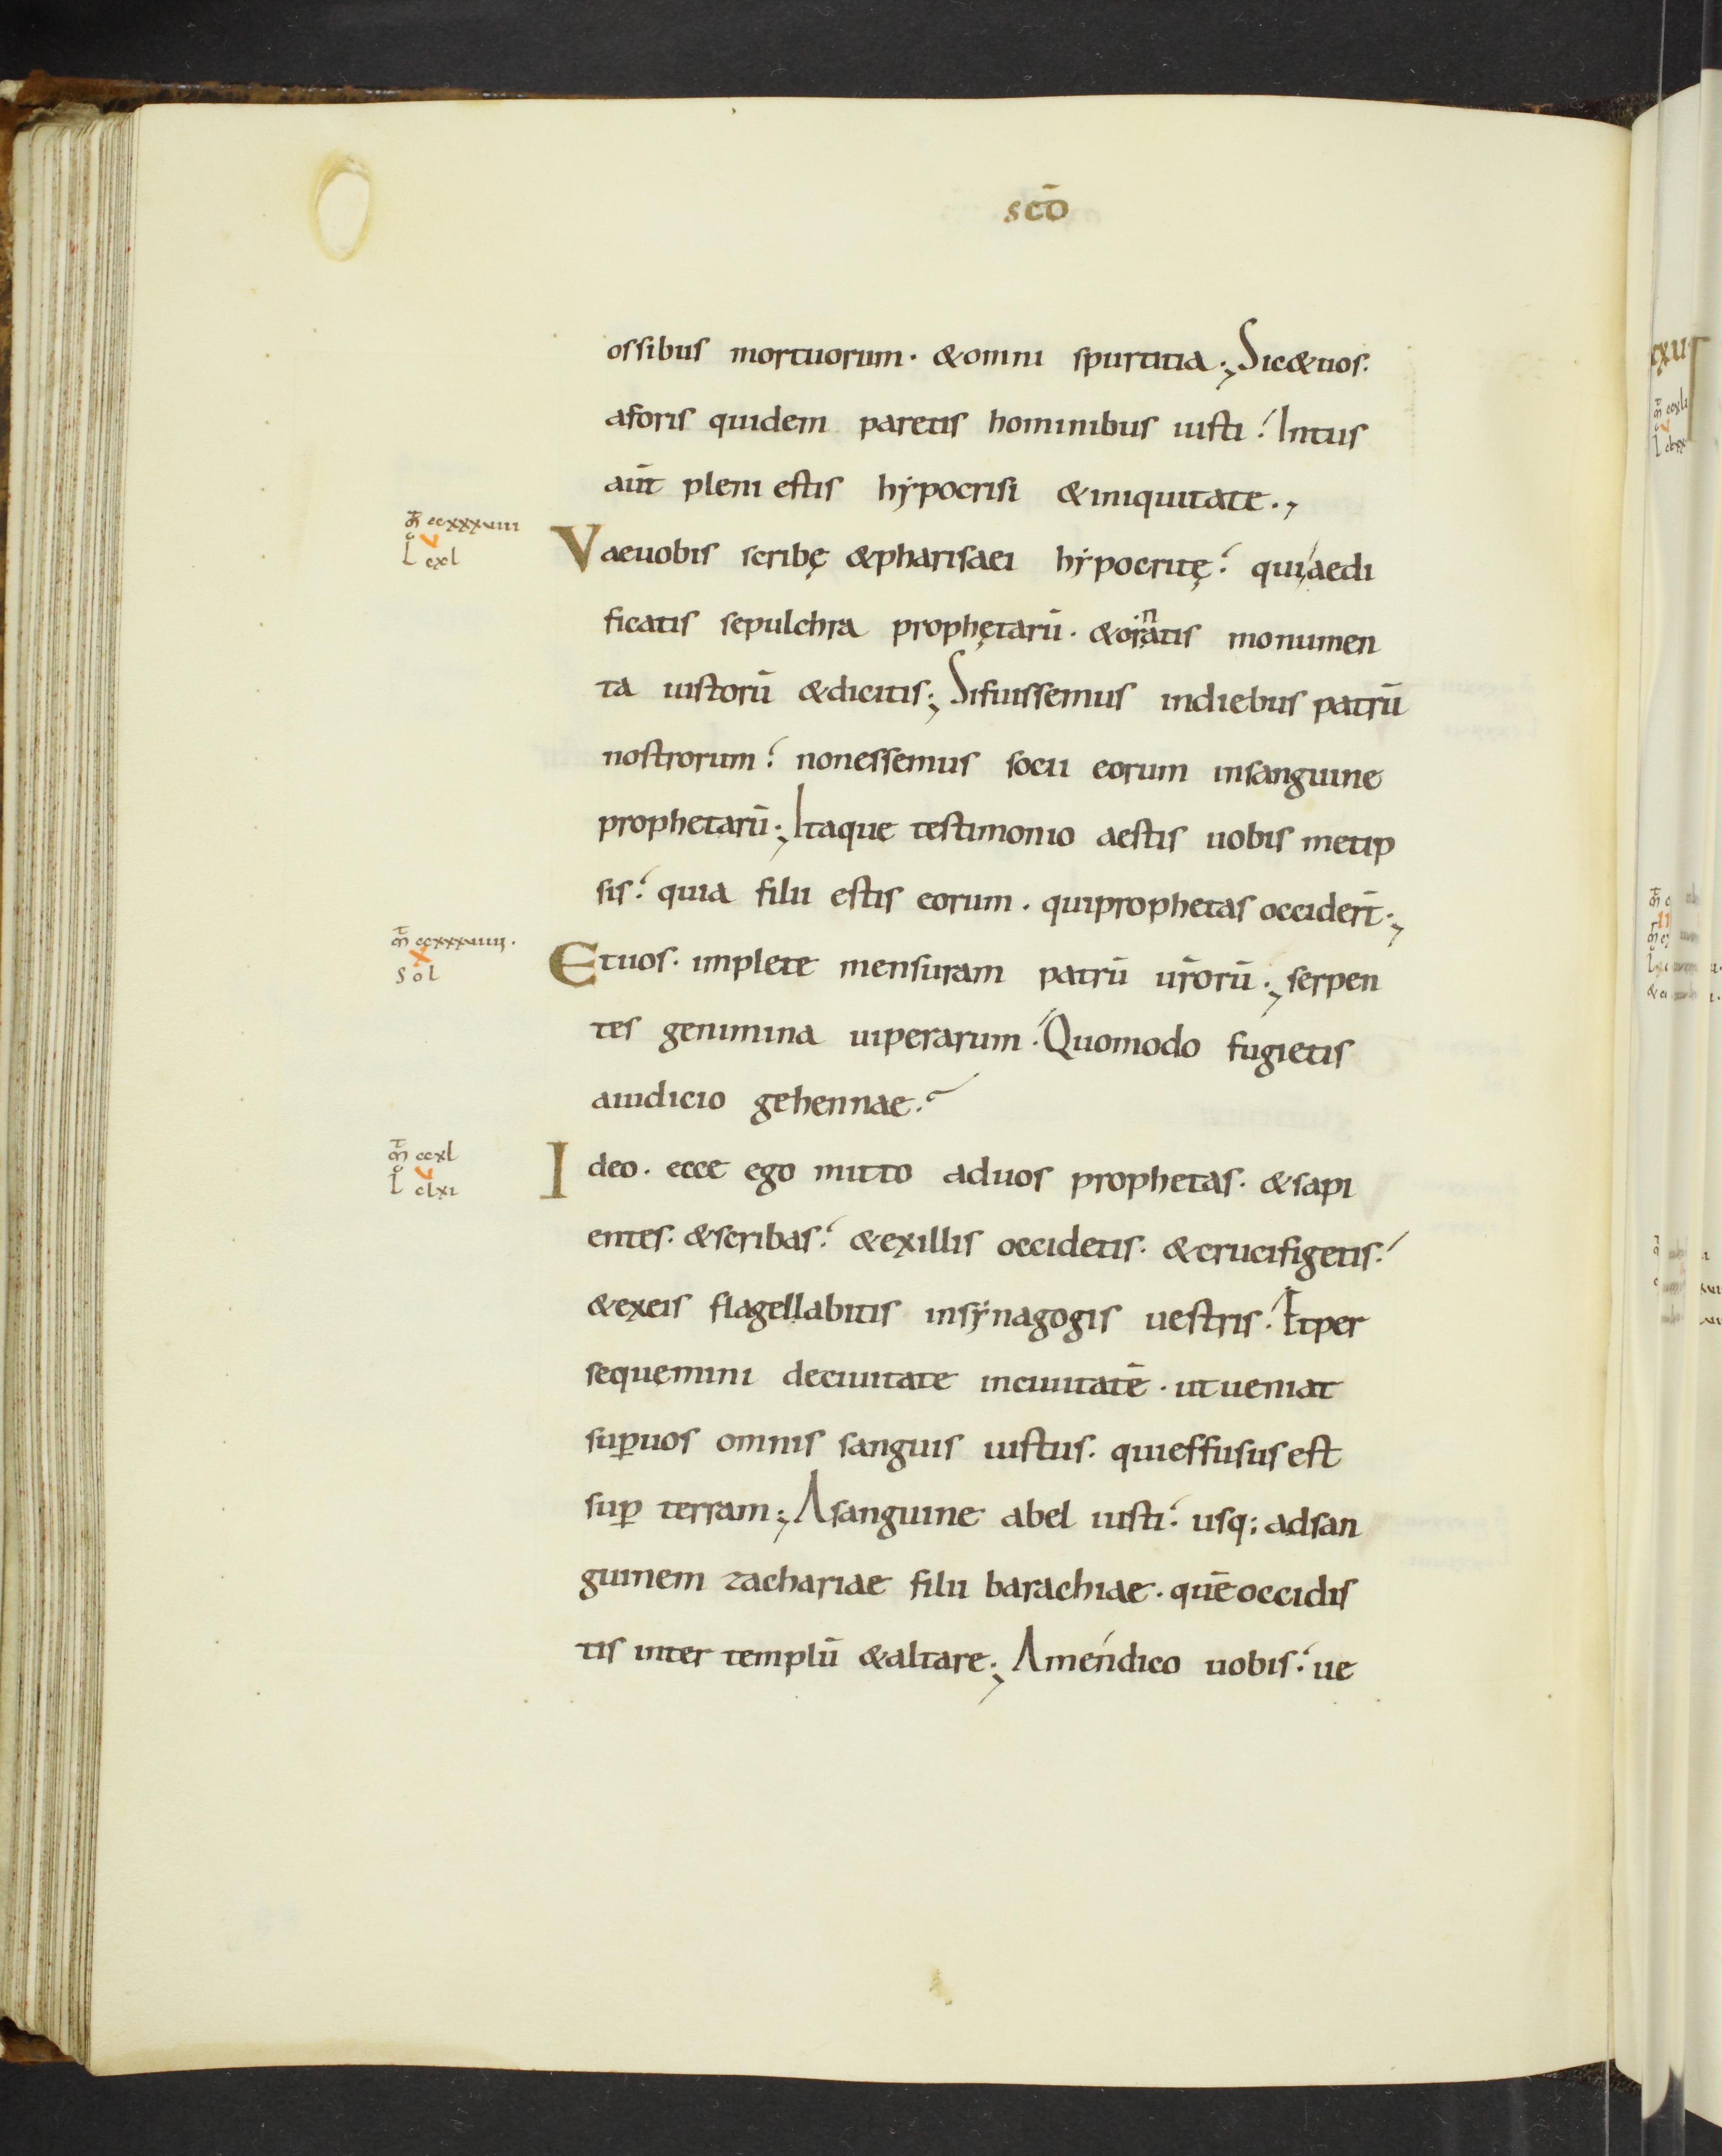 scō
ossibus mortuorum · & omni spurtitia ·, Sic & uos ·
aforis quidem paretis hominibus iusti : Intus
aūt pleni estis hẏpocrisi & iniquitate ·,
mt̄ ccxxxviii
v
l° cxl
Vae uobis scribę & pharisaei hẏpocritę : quia aedi
ficatis sepulchra prophętarū · & ornatis monumen
ta iustorū & dicitis ·, Si fuissemus in diebus patrū
nostrorum : non essemus socii eorum in sanguine
prophetarū ·, Itaque testimonio aestis uobis metip
sis : quia filii estis eorum · qui prophetas occider̄t ·,
mt̄ ccxxxviiii ·
x
sol
Et uos · implete mensuram patrū ur̄orū ·, serpen
tes genimina uiperarum : Quomodo fugietis
a iudicio gehennae ?
mt̄ ccxl
v
l° clxi
Ideo · ecce ego mitto ad uos prophetas · & sapi
entes · & scribas : & ex illis occidetis · & crucifigetis :
& ex eis flagellabitis in sẏnagogis uestris : Et per
sequemini de ciuitate in ciuitatē · ut ueniat
sup̄ uos omnis sanguis iustus · qui effusus est
sup̄ terram ·, A sanguine abel iusti : usq; ad san
guinem zachariae filii barachiae · quē occidis
tis inter templū & altare ·, Amen dico uobis : ue